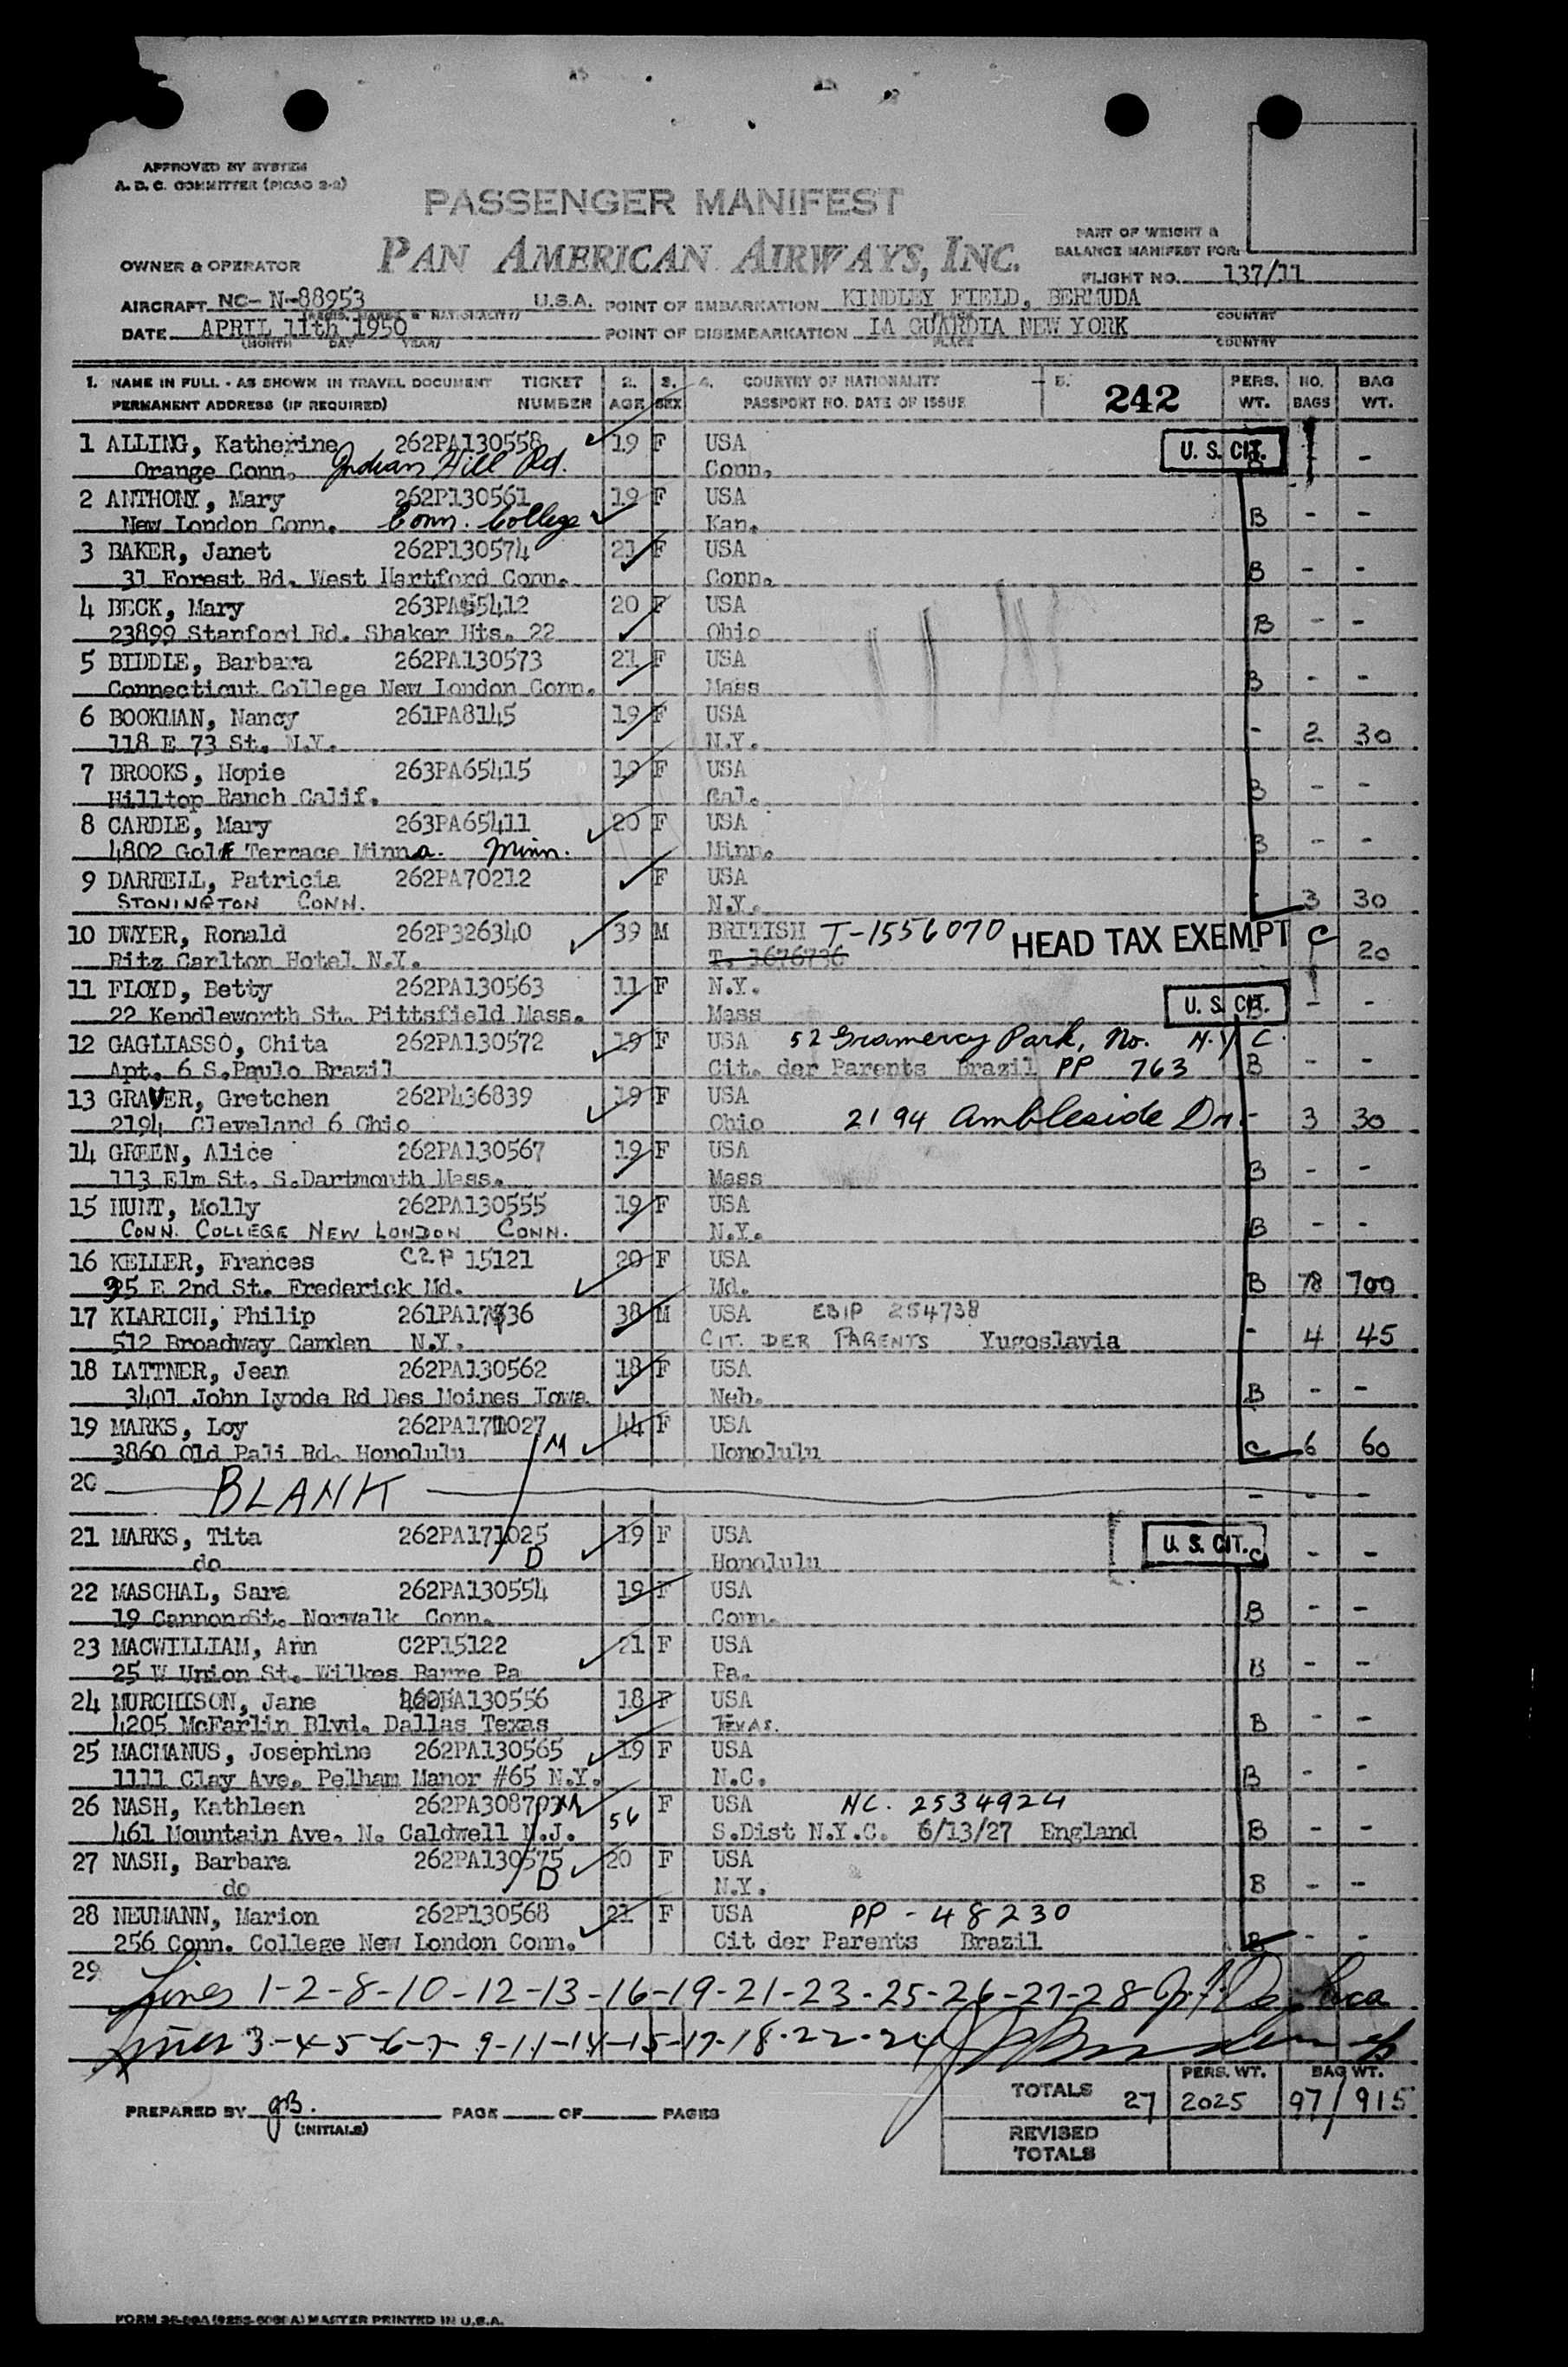 APPROVED BY SYSTEM
A. D. C. COMMITTEE (PICAO 2-2)
PASSENGER MANIFEST
PAN AMERICAN AIRWAYS, INC.
PART OF WEIGHT &
BALANCE MANIFEST FOR:
OWNER & OPERATOR
FLIGHT NO. 137/11
AIRCRAFT NC- N-88953 U.S.A. POINT OF EMBARKATION KINDLEY FIELD, BERMUDA
(REGIS. MARKS & NATIONALITY) PLACE COUNTRY
DATE APRIL 11th 1950 POINT OF DISEMBARKATION LA GUARDIA NEW YORK
(MONTH DAY YEAR) PLACE COUNTRY
1. NAME IN FULL - AS SHOWN IN TRAVEL DOCUMENT TICKET 2. 3. 4. COUNTRY OF NATIONALITY 5. 242 PERS. NO. BAG
PERMANENT ADDRESS (IF REQUIRED) NUMBER AGE SEX PASSPORT NO. DATE OF ISSUE WT. BAGS WT.
1 ALLING, Katherine 262PA130558 19 F USA U. S. CIT. -
Orange Conn. Indian Hill Rd. Conn. B
2 ANTHONY, Mary 262P130561 19 F USA
New London Conn. Conn. College Kan. B - -
3 BAKER, Janet 262P130574 21 F USA
31 Forest Rd. West Hartford Conn. Conn. B - -
4 BECK, Mary 263PA65412 20 F USA
23899 Stanford Rd. Shaker Hts. 22 Ohio B - -
5 BIDDLE, Barbara 262PA130573 21 F USA
Connecticut College New London Conn. Mass B - -
6 BOOKMAN, Nancy 261PA8145 19 F USA
118 E 73 St. N.Y. N.Y. - 2 30
7 BROOKS, Hopie 263PA65415 19 F USA
Hilltop Ranch Calif. Cal. B - -
8 CARDLE, Mary 263PA65411 20 F USA
4802 Golf Terrace Minna. Minn. Minn. B - -
9 DARRELL, Patricia 262PA70212 F USA
STONINGTON CONN. N.Y. - 3 30
10 DWYER, Ronald 262P326340 39 M BRITISH T-1556070 HEAD TAX EXEMPT C
Ritz Carlton Hotel N.Y. T. 1676736 - 20
11 FLOYD, Betty 262PA130563 11 F N.Y. U. S. CIT. - -
22 Kendleworth St. Pittsfield Mass. Mass B
12 GAGLIASSO, Chita 262PA130572 19 F USA 52 Gramercy Park, No. N.Y C.
Apt. 6 S.Paulo Brazil Cit. der Parents Brazil PP 763 B - -
13 GRAVER, Gretchen 262P436839 19 F USA
2194 Cleveland 6 Ohio Ohio 2194 Ambleside Dr. - 3 30
14 GREEN, Alice 262PA130567 19 F USA
113 Elm St. S.Dartmouth Mass. Mass B - -
15 HUNT, Molly 262PA130555 19 F USA
CONN. COLLEGE NEW LONDON CONN. N.Y. B - -
16 KELLER, Frances C2P 15121 20 F USA
35 E 2nd St. Frederick Md. Md. B 78 700
17 KLARICH, Philip 261PA17936 38 M USA EBIP 254738
512 Broadway Camden N.Y. CIT. DER PARENTS Yugoslavia - 4 45
18 LATTNER, Jean 262PA130562 18 F USA
3401 John Lynde Rd Des Moines Iowa Neb. B - -
19 MARKS, Loy 262PA171027 44 F USA
3860 Old Pali Rd. Honolulu M Honolulu C 6 60
20 BLANK - - -
21 MARKS, Tita 262PA171025 19 F USA U. S. CIT.
do D Honolulu C - -
22 MASCHAL, Sara 262PA130554 19 F USA
19 Cannon St. Norwalk Conn. Conn. B - -
23 MACWILLIAM, Ann C2P15122 21 F USA
25 W Union St. Wilkes Barre Pa Pa. B - -
24 MURCHISON, Jane 262PA130556 18 F USA
4205 McFarlin Blvd. Dallas Texas TEXAS. B - -
25 MACMANUS, Josephine 262PA130565 19 F USA
1111 Clay Ave. Pelham Manor #65 N.Y. N.C. B - -
26 NASH, Kathleen 262PA308703 M 56 F USA NC. 2534924
461 Mountain Ave. N. Caldwell N.J. S.Dist N.Y.C. 6/13/27 England B - -
27 NASH, Barbara 262PA130575 20 F USA
do D N.Y. B - -
28 NEUMANN, Marion 262P130568 21 F USA PP - 48230
256 Conn. College New London Conn. Cit der Parents Brazil B - -
29 Lines 1-2-8-10-12-13-16-19-21-23-25-26-27-28
Lines 3-4-5-6-7-9-11-14-15-17-18-22-24
TOTALS 27 PERS. WT. 2025 BAG WT. 97/915
PREPARED BY JB. PAGE OF PAGES
(INITIALS)
REVISED
TOTALS
MASTER PRINTED IN U.S.A.